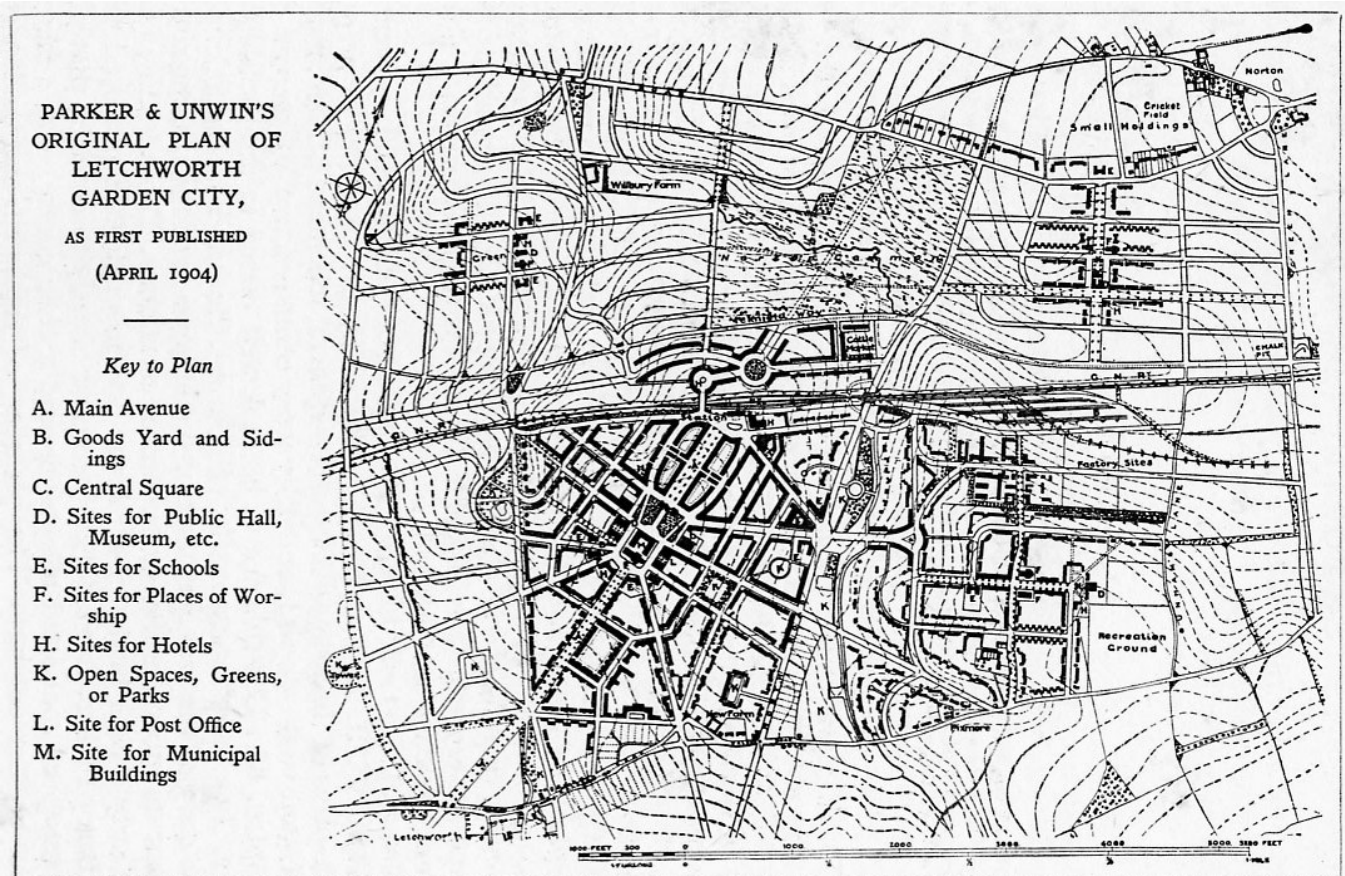 PARKER & UNWIN'S
ORIGINAL PLAN OF
LETCHWORTH
GARDEN CITY,
AS FIRST PUBLISHED
(APRIL 1904)
Key to Plan
A. Main Avenue
B. Goods Yard and Sid-
ings
C. Central Square
D. Sites for Public Hall,
Museum, etc.
E. Sites for Schools
F. Sites for Places of Wor-
ship
H. Sites for Hotels
K. Open Spaces, Greens,
or Parks
L. Site for Post Office
M. Site for Municipal
Buildings
Norton
Cricket
Field
Small Holdings
E
Wilbury Farm
E
Green
H
D
E
H
Cattle
Market
CHALK
PIT
G.N.R.
Station
H
G.N.R.
Factory Sites
K
E
K
F
D
H
Recreation
Ground
K
K
Pixmore
K
Letchworth
1000 FEET 500 0 1000 2000 3000 4000 5000 5280 FEET
1 MILE